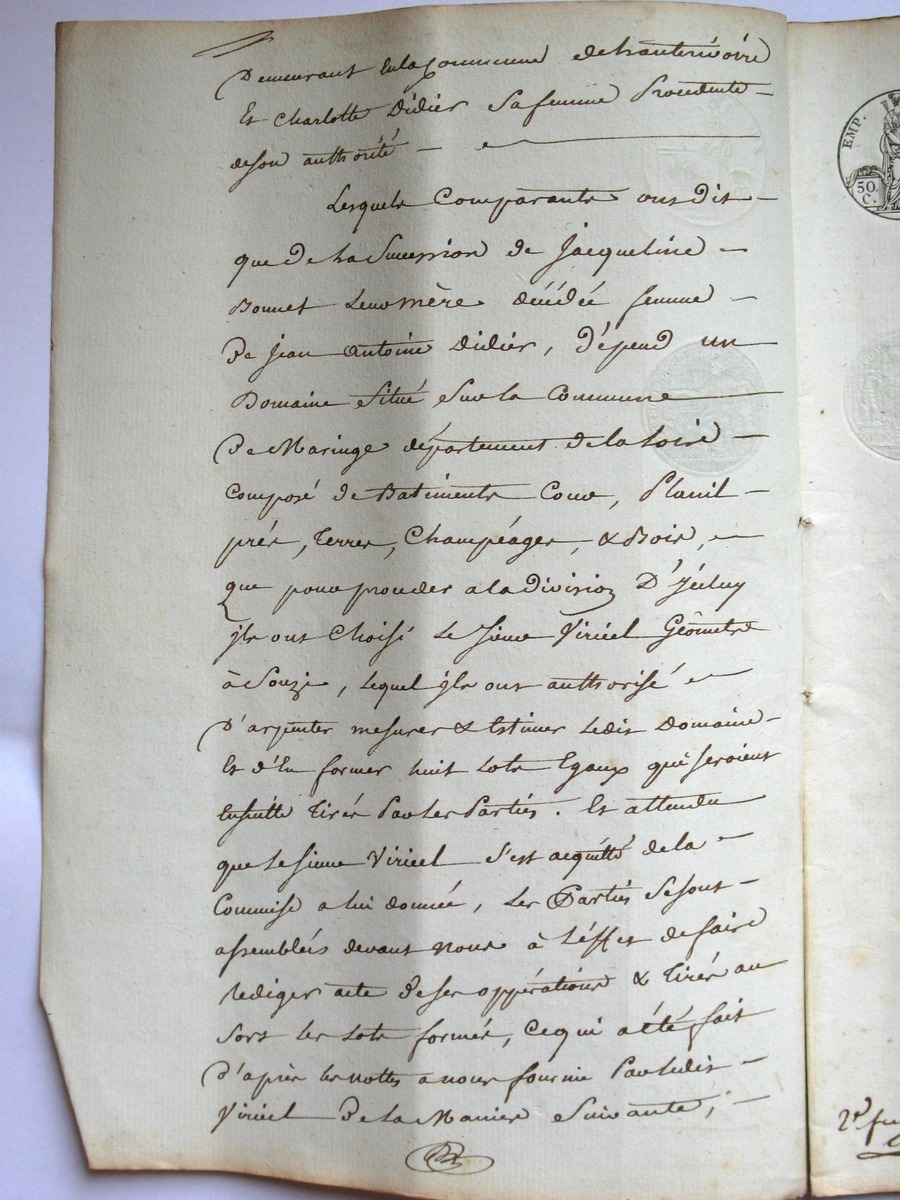 Demeurant En la Commune de hauterivoire
Et Charlotte Didier Sa femme Procedente
de son authorité
Lesquels Comparants ont dit
que De La Succession de Jacqueline
Bonnet Leur Mère décédée femme
De Jean Antoine Didier, dépend un
Domaine Situé Sur la Commune
De Maringe département de la Loire
Composé de Batiments Cour, Plauil
prés, Terres, Champéages, & Bois,
que pour proceder a la Division D'Jceluy
jls ont Choisi Le Sieur Viricel Géomètre
à Souzi, Lequel jls ont authorisé
D'arpenter mesurer & Estimer Ledit Domaine
Et d'En former huit Lots Egaux qui seraient
Ensuitte Tirés Par Les Parties. Et attendu
que Le Sieur Viricel s'est acquitté de la
Commise a lui donnée, Les Parties Se sont
assemblés devant Nous à L'éffet de faire
rediger acte De ses oppérations & Tirér au
Sort les Lots formés, Ce qui a été fait
D'après les nottes a nous fournie Par Ledit
Viricel De La Maniere Suivante,
EMP.
50.
C.